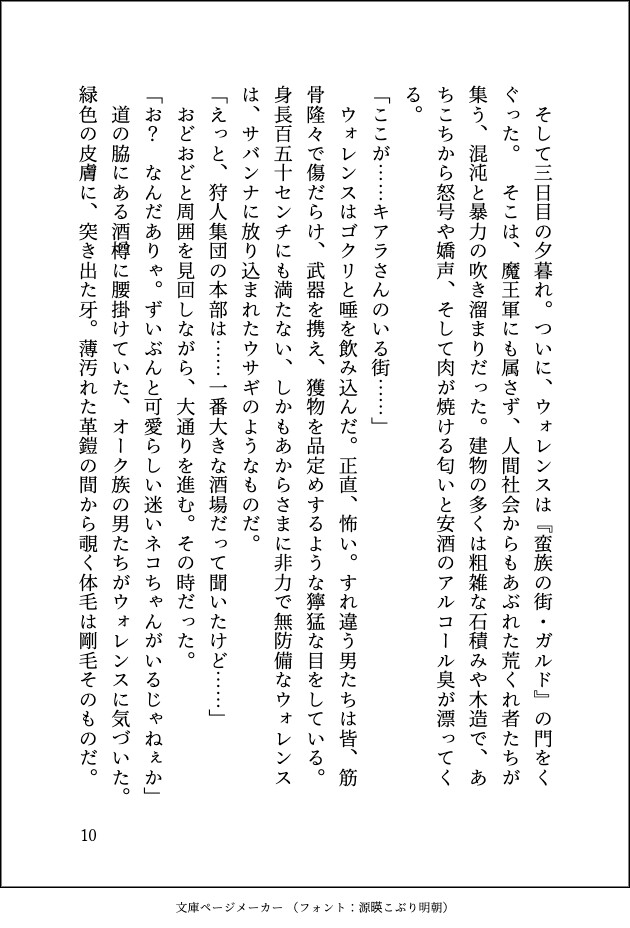 そして三日目の夕暮れ。ついに、ウォレンスは『蛮族の街・ガルド』の門をく
ぐった。　そこは、魔王軍にも属さず、人間社会からもあぶれた荒くれ者たちが
集う、混沌と暴力の吹き溜まりだった。建物の多くは粗雑な石積みや木造で、あ
ちこちから怒号や嬌声、そして肉が焼ける匂いと安酒のアルコール臭が漂ってく
る。
「ここが……キアラさんのいる街……」
　ウォレンスはゴクリと唾を飲み込んだ。正直、怖い。すれ違う男たちは皆、筋
骨隆々で傷だらけ、武器を携え、獲物を品定めするような獰猛な目をしている。
身長百五十センチにも満たない、しかもあからさまに非力で無防備なウォレンス
は、サバンナに放り込まれたウサギのようなものだ。
「えっと、狩人集団の本部は……一番大きな酒場だって聞いたけど……」
　おどおどと周囲を見回しながら、大通りを進む。その時だった。
「お？　なんだありゃ。ずいぶんと可愛らしい迷いネコちゃんがいるじゃねぇか」
　道の脇にある酒樽に腰掛けていた、オーク族の男たちがウォレンスに気づいた。
緑色の皮膚に、突き出た牙。薄汚れた革鎧の間から覗く体毛は剛毛そのものだ。
10
文庫ページメーカー（フォント：源暎こぶり明朝）